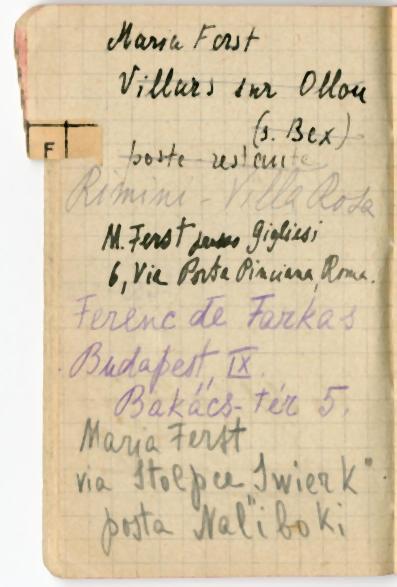 Maria Ferst
Villars sur Ollon
(s. Bex)
F
poste restante
Rimini - Villa Rosa
M. Ferst presso Gigliesi
6, Via Porta Pinciana, Roma.
Ferenc de Farkas
Budapest, IX.
Bakács-tér 5.
Maria Ferst
via Stolpce "Swierk"
posta Naliboki